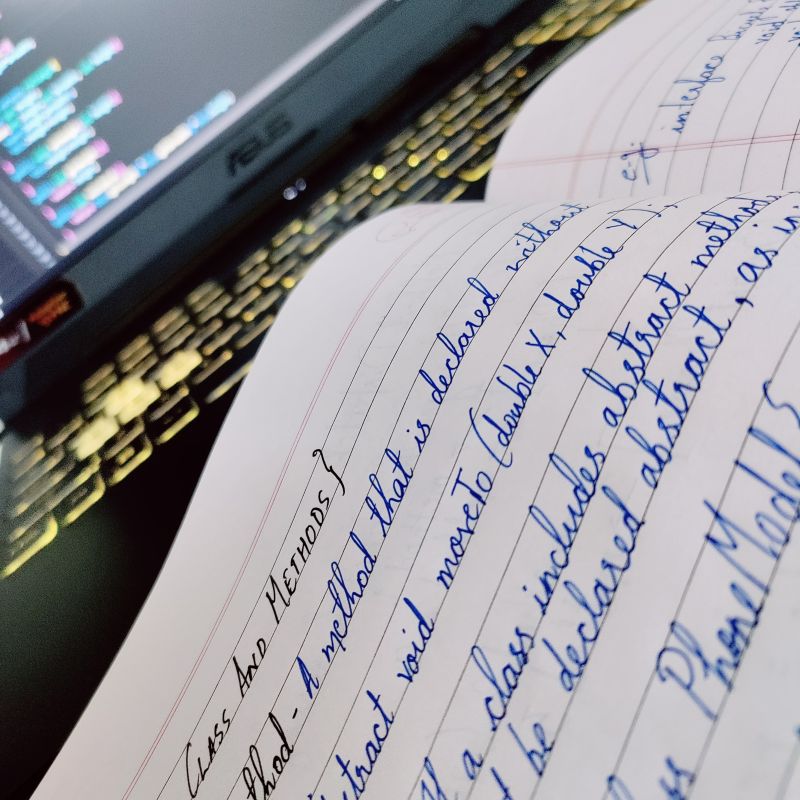 ASUS
e.g. interface
CLASS AND METHODS }
thod - A method that is declared without
stract void moveTo (double X, double Y);
If a class includes abstract method
t be declared abstract, as in
ss PhoneModel {